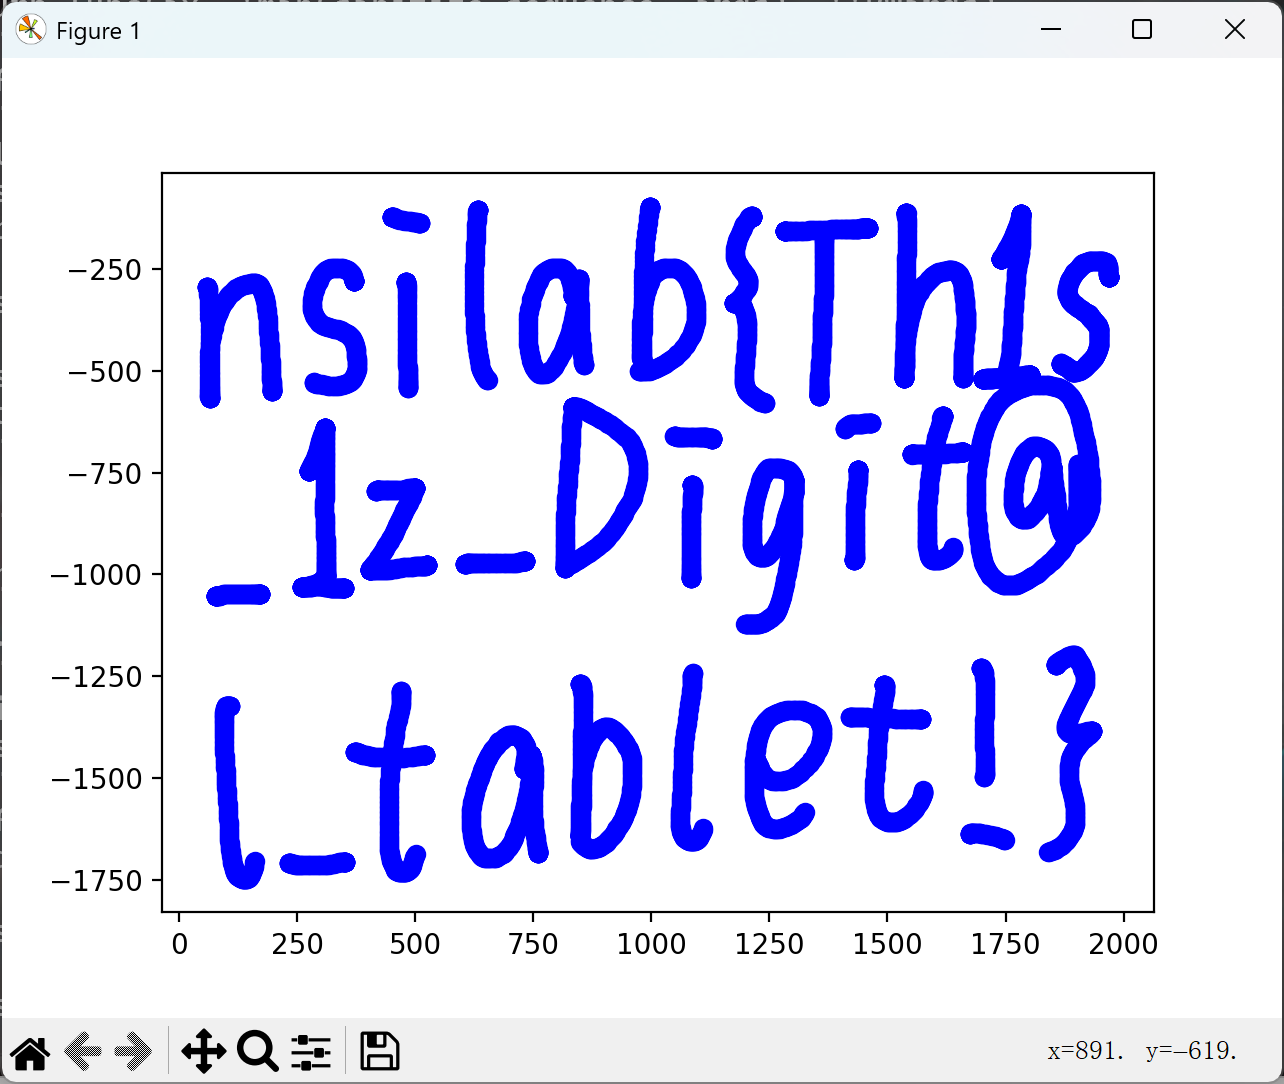 Figure 1
nsilab{Th1s
_1z_Digit@
l_tablet!}
-250
-500
-750
-1000
-1250
-1500
-1750
0 250 500 750 1000 1250 1500 1750 2000
x=891. y=-619.